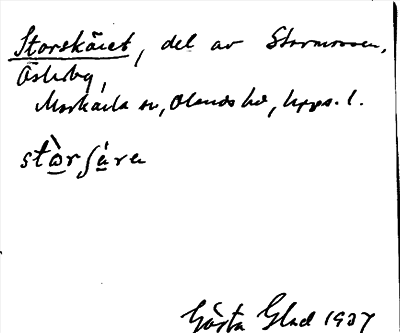 Storskäret, del av Stormossen,
Österby,
Morkarla sn, Olands hd, Upps. l.
stòrʃä́re
Gösta Glad 1937